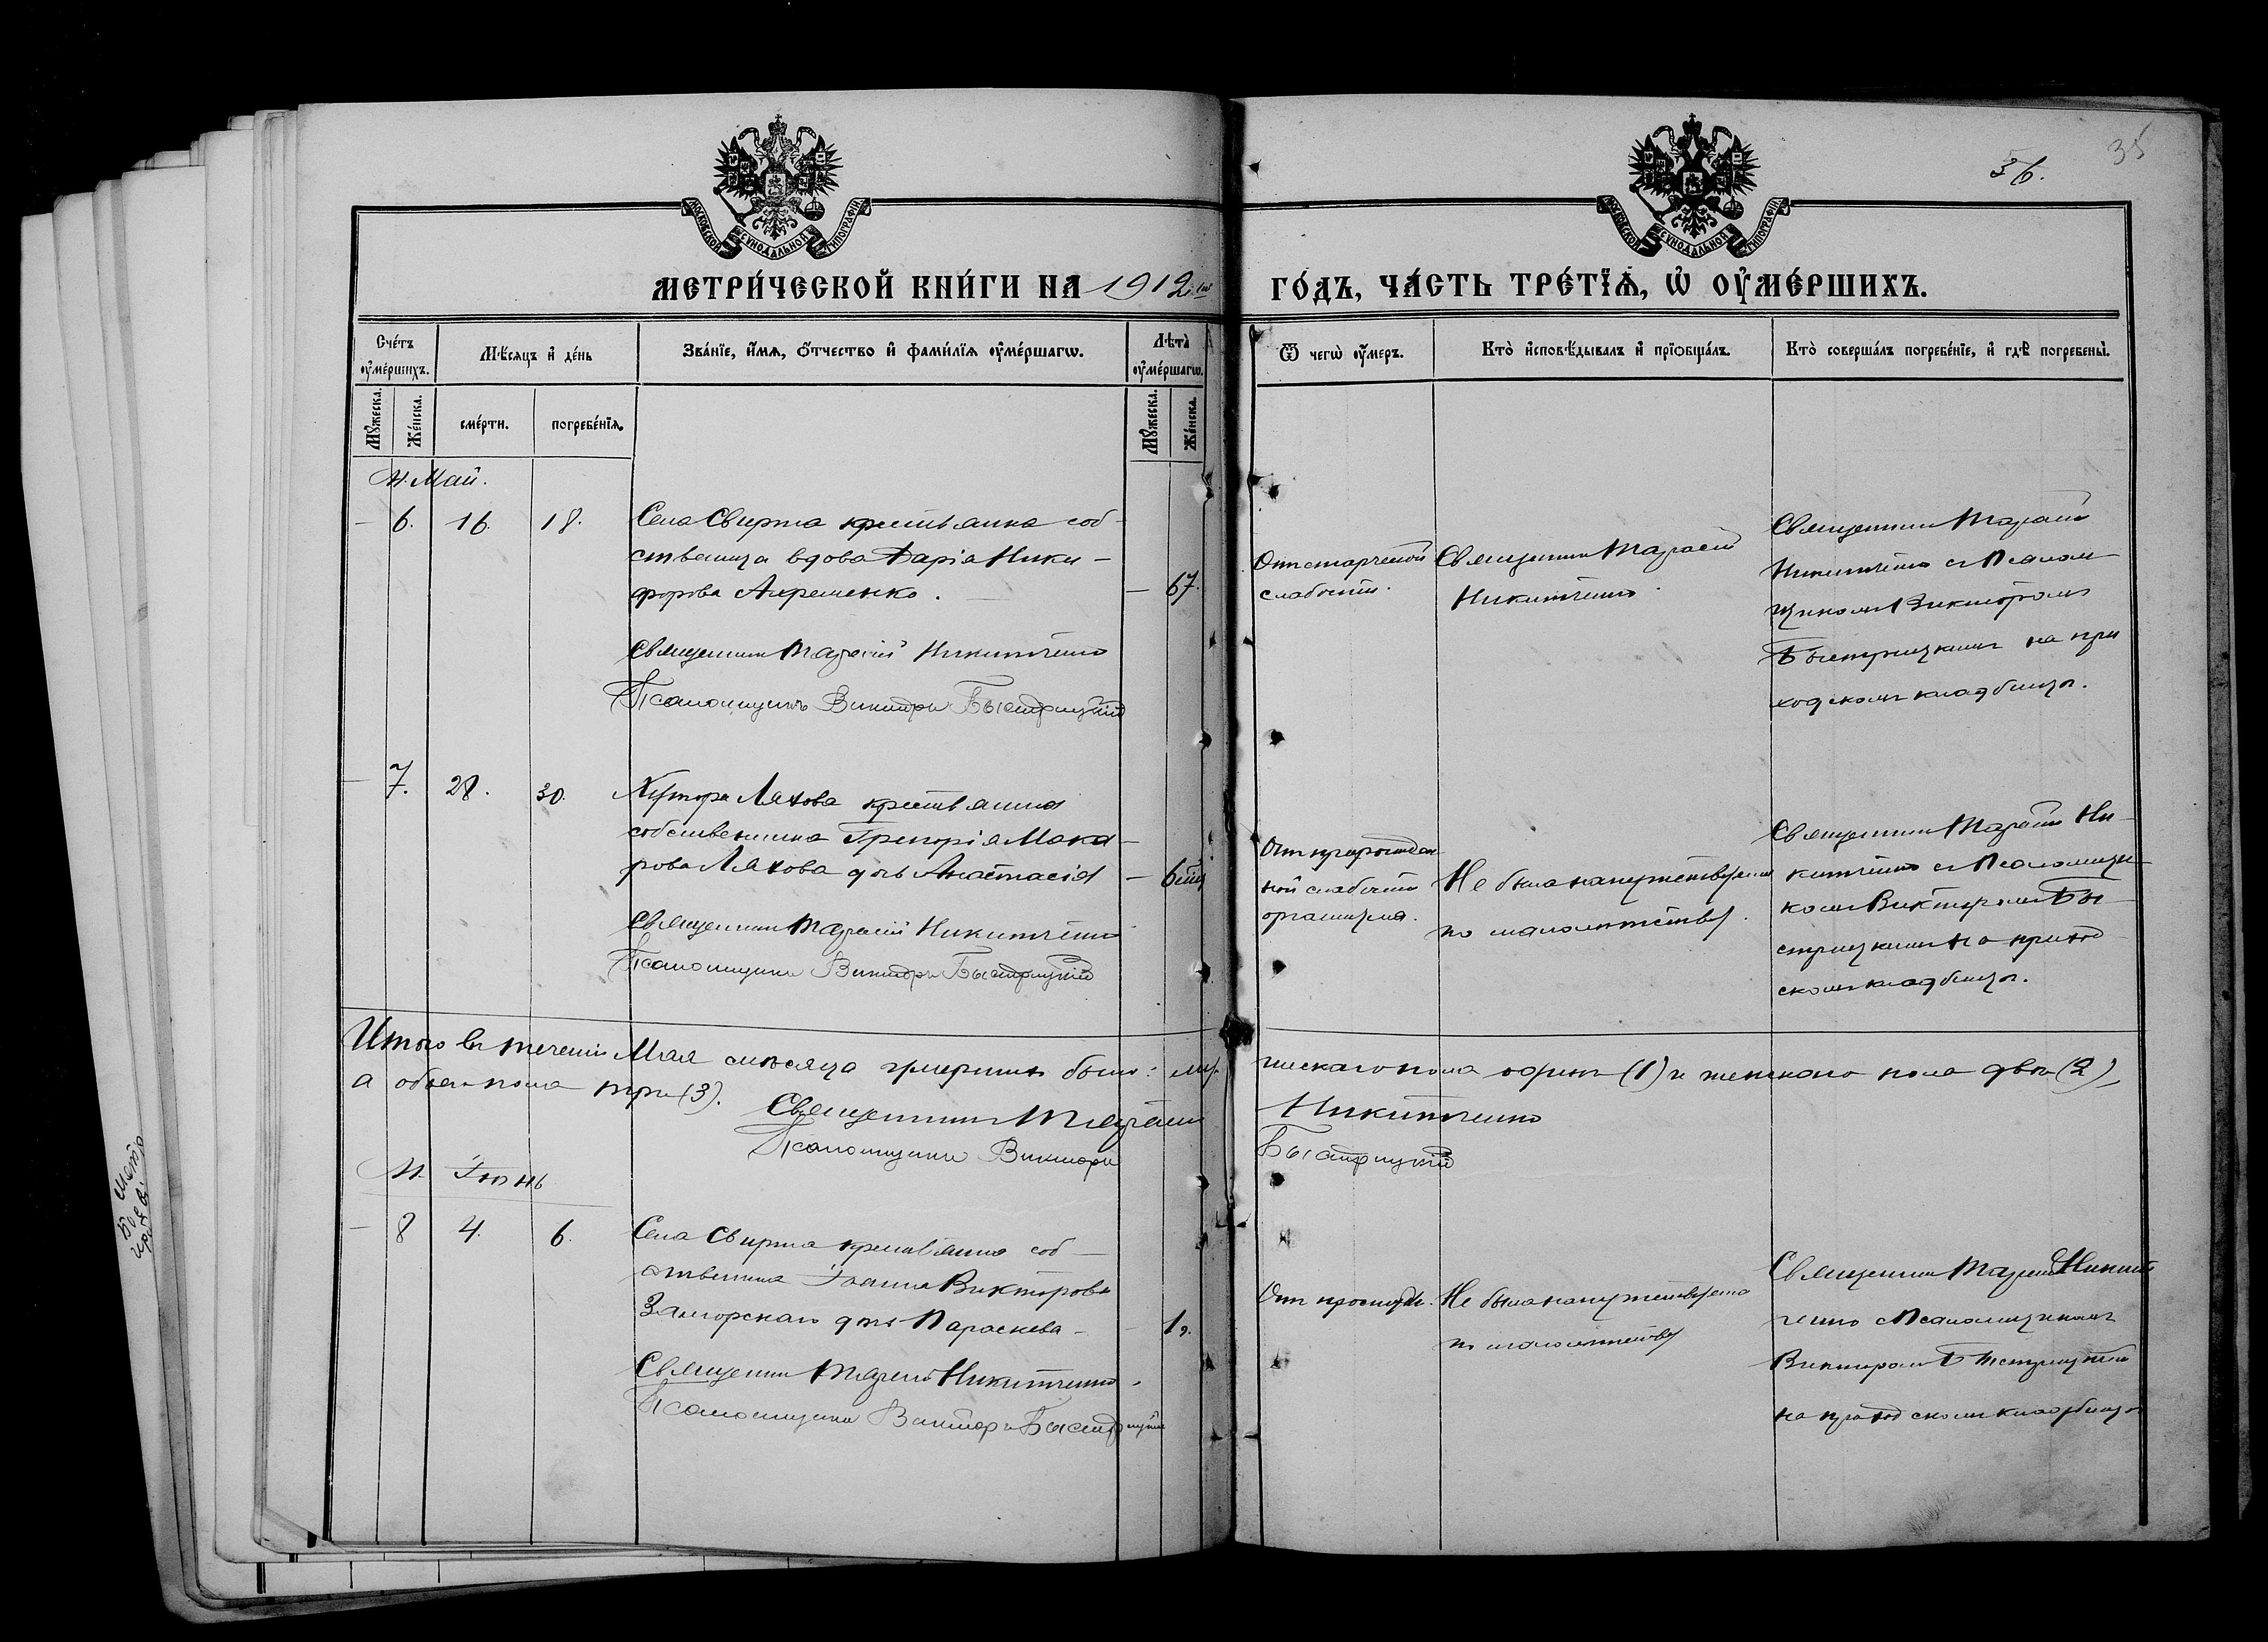 35
36.
МОСКОВСКОЙ СѴНОДАЛЬНОЙ ТИПОГРАФІИ
МОСКОВСКОЙ СѴНОДАЛЬНОЙ ТИПОГРАФІИ
МЕТРИ́ЧЕСКОЙ КНИ́ГИ НА 1912й
ГО́ДЪ, ЧА́СТЬ ТРЕ́ТІѦ, Ѡ҆ ОУ҆МЕ́РШИХЪ.
Сче́тъ оу҆ме́ршихъ.
Мѣ́сяцъ и҆ де́нь
Зва́нїе, и҆́мѧ, ѻ҆́тчество и҆ фами́лїѧ оу҆ме́ршагѡ.
Лѣ́та оу҆ме́ршагѡ.
Ѿ чегѡ̀ оу҆́меръ.
Кто̀ и҆сповѣ́дывалъ и҆ прїѡбща́лъ.
Кто̀ соверша́лъ погребе́нїе, и҆ гдѣ̀ погребены̀.
Мꙋ́жеска.
Же́нска.
сме́рти.
погребе́нїѧ.
Мꙋ́жеска.
Же́нска.
М. Май.
— 6. 16. 18.
Села Свиржа крестьянка соб-
ственница вдова Дарія Ники-
форова Ахременко.
— 67.
Священникъ Тарасій Никитченко
Псаломщикъ Викторъ Быстрицкій
Отъ старческой
слабости.
Священникъ Тарасій
Никитченко.
Священникъ Тарасій
Никитченко съ Псалом-
щикомъ Викторомъ
Быстрицкимъ на при
ходскомъ кладбищѣ.
— 7. 28. 30.
Хутора Ляхова крестьянина
собственника Григорія Мака-
рова Ляхова дочь Анастасія
— 6 мц
Священникъ Тарасій Никитченко
Псаломщикъ Викторъ Быстрицкій
Отъ прирожден-
ной слабости
организма.
Не была напутствована
по малолѣтству.
Священникъ Тарасій Ни-
китченко съ Псаломщи-
комъ Викторомъ Бы-
стрицкимъ на приход-
скомъ кладбищѣ.
Итого въ теченіи Мая мѣсяца умершихъ было: муж
ческаго пола одинъ (1) и женскаго пола двѣ (2),
а обоего пола три (3).
Священникъ Тарасій Никитченко
Псаломщикъ Викторъ Быстрицкій
М. Іюнь
— 8 4. 6.
Села Свиржа крестьянина соб-
ственника Іоанна Викторова
Загорскаго дочь Параскева
— 1 г.
Священникъ Тарасій Никитченко.
Псаломщикъ Викторъ Быстрицкій
Отъ простуды.
Не была напутствована
по малолѣтству
Священникъ Тарасій Никит
ченко съ Псаломщикомъ
Викторомъ Быстрицкимъ
на приходскомъ кладбищѣ